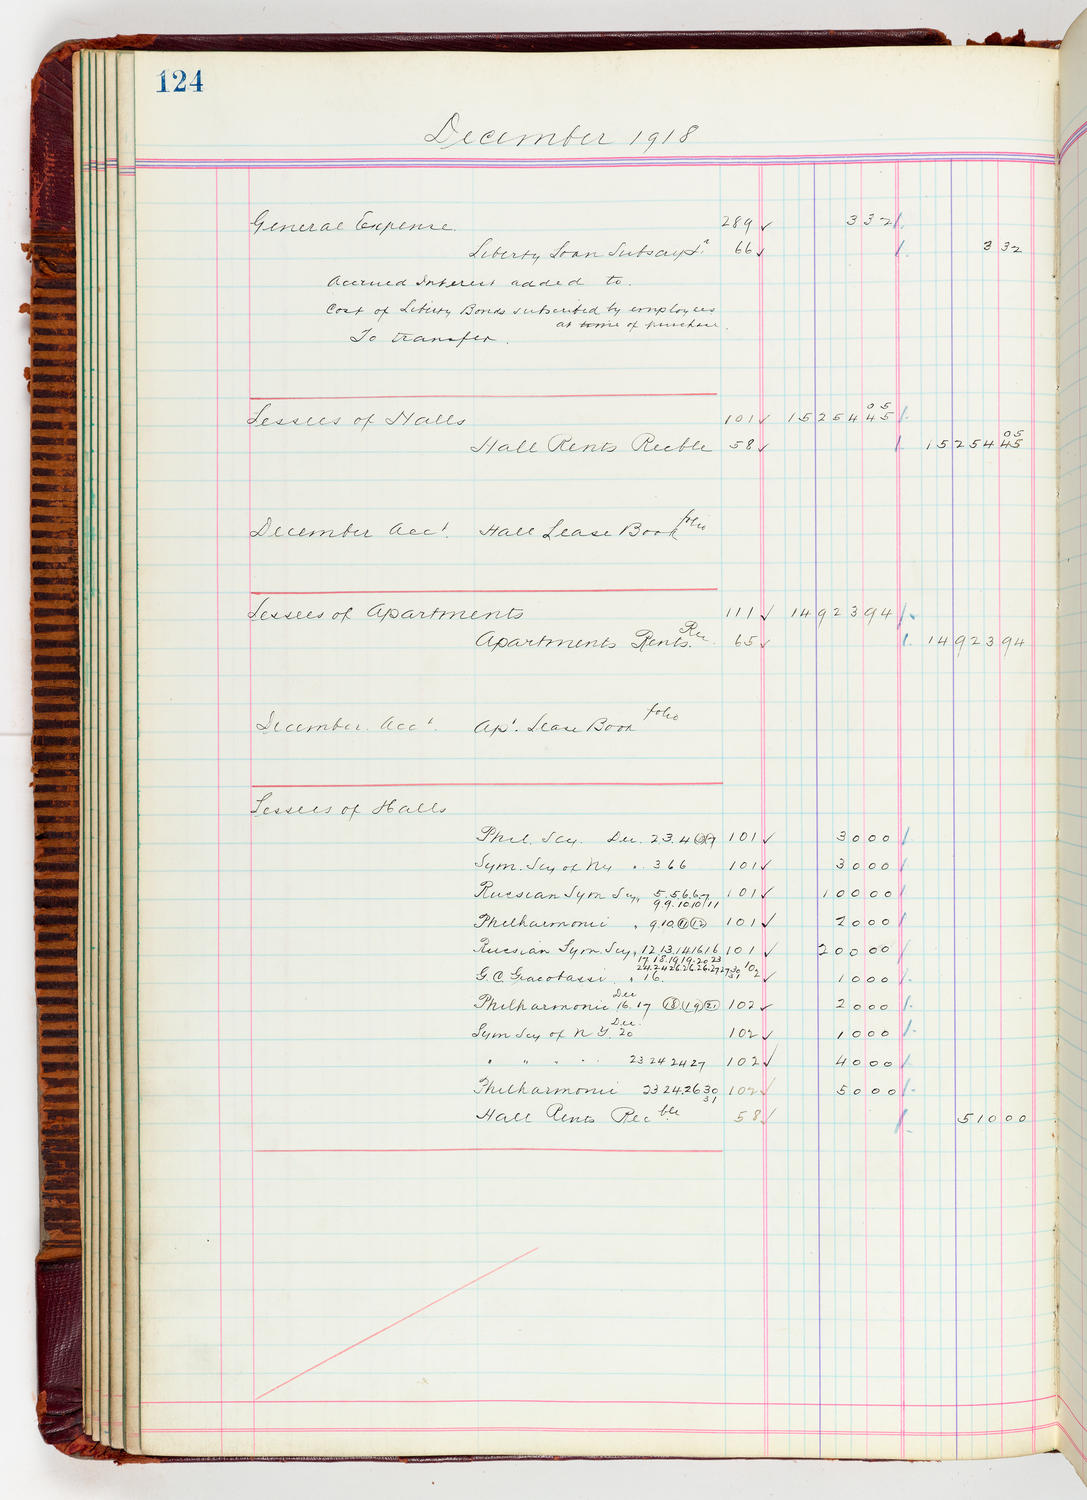 124
December 1918
General Expense. 289 ✓ 332
Liberty Loan Subscrpt. 66 ✓ 332
Accrued Interest added to
Cost of Liberty Bonds subscribed by employees
at time of purchase.
To transfer.
Lessees of Halls 101 ✓ 1525445 05
Hall Rents Recble 58 ✓ 1525445 05
December Acct. Hall Lease Book folio
Lessees of Apartments 111 ✓ 1492394
Apartments Rents. Rec. 65 ✓ 1492394
December. Acct. Apt. Lease Book folio
Lessees of Halls
Phil. Scy. Dec. 2.3.4 101 ✓ 3000
Sym. Scy of Ny " 3 6 6 101 ✓ 3000
Russian Sym Scy, 5.5.6.6.7 101 ✓ 10000
9.9.10 10/11
Philharmonic " 9.10 11 12 101 ✓ 2000
Russian Sym. Scy, 12.13.14 16 16 101 ✓ 20000
17 18.19 19.20 23
24.24 26.26.26.27 27 30 31
G. C. " 16. 102 ✓ 1000
Philharmonic Dec 16.17 18 19 21 102 ✓ 2000
Sym Scy of N Y. Dec. 20 102 ✓ 1000
" " " " 23 24 24 27 102 ✓ 4000
Philharmonic 23 24.26 30 31 102 ✓ 5000
Hall Rents Recble 58 ✓ 51000